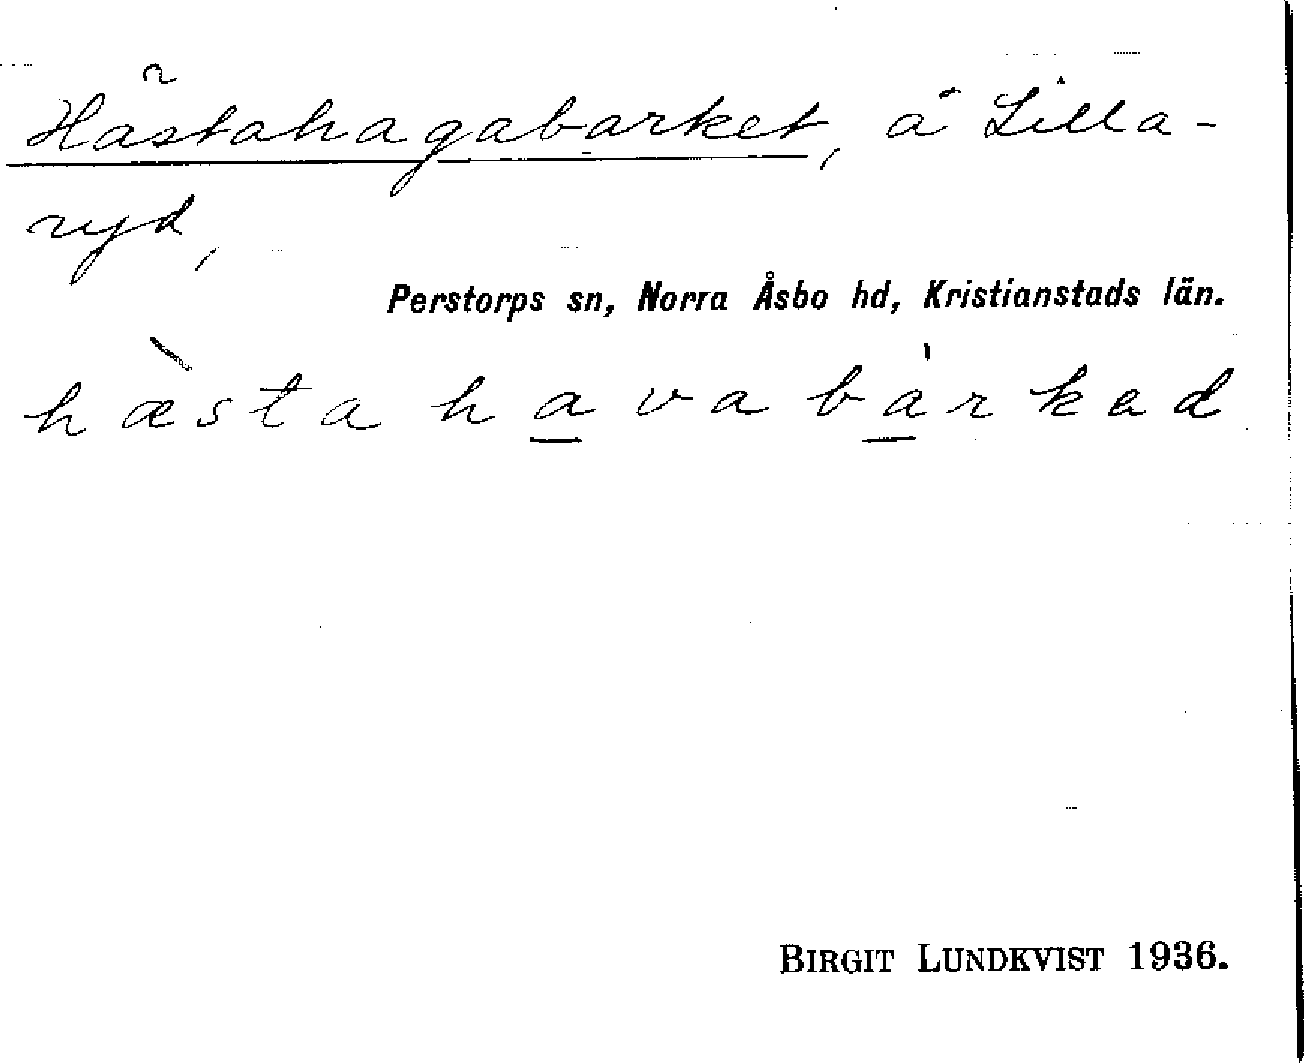 Hästahagabarket, å Lilla-
ryd,
Perstorps sn, Norra Åsbo hd, Kristianstads län.
hæ̀stahavabàrkad
BIRGIT LUNDKVIST 1936.